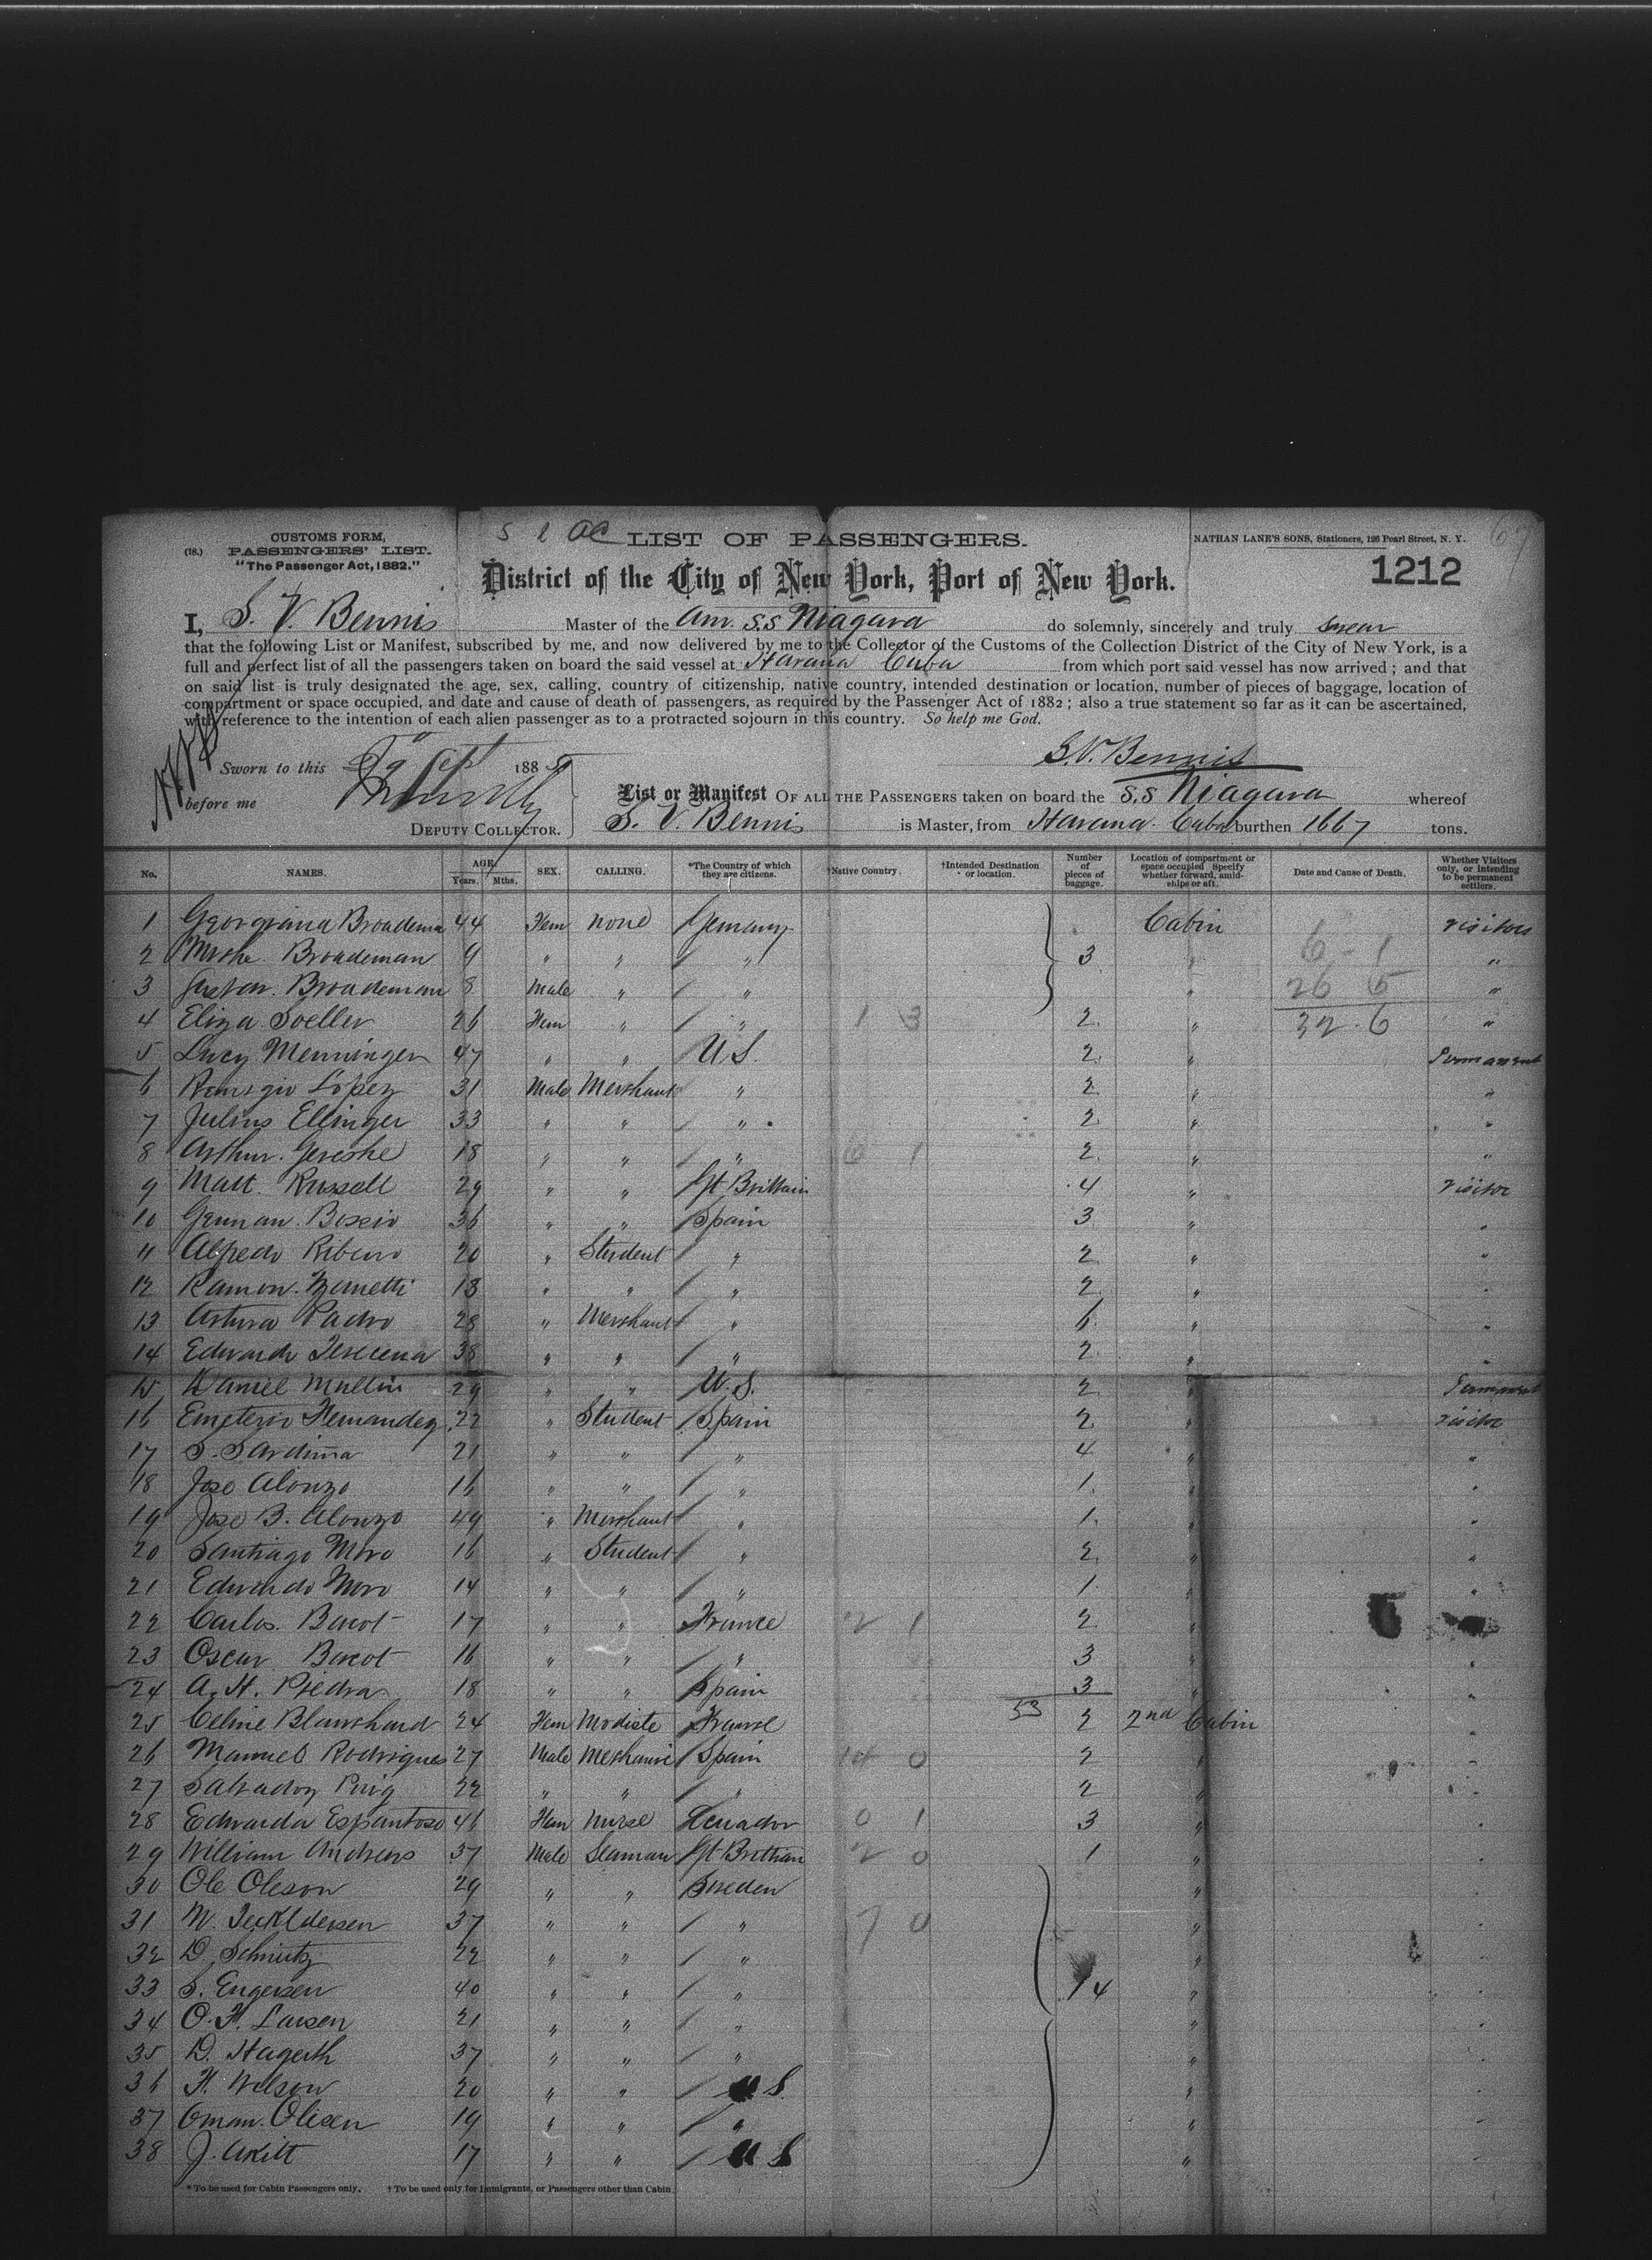 CUSTOMS FORM,
(18.) PASSENGERS' LIST.
"The Passenger Act, 1882."
LIST OF PASSENGERS.
NATHAN LANE'S SONS, Stationers, 126 Pearl Street, N. Y.
67
District of the City of New York, Port of New York.
1212
I, S. V. Bennis Master of the Am. S.S Niagara do solemnly, sincerely and truly swear
that the following List or Manifest, subscribed by me, and now delivered by me to the Collector of the Customs of the Collection District of the City of New York, is a
full and perfect list of all the passengers taken on board the said vessel at Havana Cuba from which port said vessel has now arrived; and that
on said list is truly designated the age, sex, calling, country of citizenship, native country, intended destination or location, number of pieces of baggage, location of
compartment or space occupied, and date and cause of death of passengers, as required by the Passenger Act of 1882; also a true statement so far as it can be ascertained,
with reference to the intention of each alien passenger as to a protracted sojourn in this country. So help me God.
S. V. Bennis
Sworn to this Sept 1885
before me
DEPUTY COLLECTOR.
List or Manifest OF ALL THE PASSENGERS taken on board the S.S Niagara whereof
S. V. Bennis is Master, from Havana. Cuba burthen 1667 tons.
No. NAMES. AGE. Years. Mths. SEX. CALLING. *The Country of which they are citizens. †Native Country. †Intended Destination or location. Number of pieces of baggage. Location of compartment or space occupied Specify whether forward, amidships or aft. Date and Cause of Death. Whether Visitors only, or intending to be permanent settlers.
1 Georgiana Broademan 44 Fem none Germany Cabin visitors
2 Broademan 9 " " " 3 " 6 - 1 "
3 Broademan 8 Male " " " 26 5 "
4 Eliza Soeller 26 Fem " " 1 3 2 " 32 . 6 "
5 Lucy Menninger 47 " " U S. 2 " Permanent
6 Remigio Lopez 31 Male Merchant " 2 " "
7 Julius Ellinger 33 " " " 2 " "
8 Arthur 18 " " " 6 1 2 " "
9 Matt. Russell 29 " " Gt Brittain 4 " visitor
10 German 36 " " Spain 3 " "
11 Alfredo Ribero 20 " Student " 2 " "
12 Ramon. Zanetti 18 " " " 2 " "
13 Arturo Padro 28 " Merchant " 6 " "
14 Edwardo 38 " " " 2 " "
15 Daniel Mullin 29 " " U.S. 2 " Permanent
16 Emeterio Hernandez 22 " Student Spain 2 " visitor
17 S. Sardiña 21 " " " 4 " "
18 Jose Alonzo 16 " " " 1 " "
19 Jose B. Alonzo 49 " Merchant " 1 " "
20 Santiago Moro 16 " Student " 2 " "
21 Edwardo Moro 14 " " " 1 " "
22 Carlos Bacot 17 " " France 2 1 2 "
23 Oscar Bacot 16 " " " 3 " "
24 A. H. Piedra 18 " " Spain 3 " "
53
25 Celine Blanchard 24 Fem Modiste France 2 2nd Cabin
26 Manuel Rodrigues 27 Male Mechanic Spain 14 0 2 " "
27 Salvador Puig 22 " " " 2 " "
28 Edwarda Espantoso 46 Fem Nurse Ecuador 0 1 3 " "
29 William Andrews 37 Male Seaman Gt Brittain 2 0 1 " "
30 Ole Oleson 29 " " Sweden " "
31 M. 37 " " " 7 0 " "
32 D. Schmitz 22 " " " " "
33 S. Engersen 40 " " " 14 " "
34 O. F. Larsen 21 " " " " "
35 D. Hagerth 37 " " " " "
36 H. Wilson 20 " " U S " "
37 Oman. Olisen 19 " " " " "
38 J. 17 " " U S " "
* To be used for Cabin Passengers only. † To be used only for Immigrants, or Passengers other than Cabin.